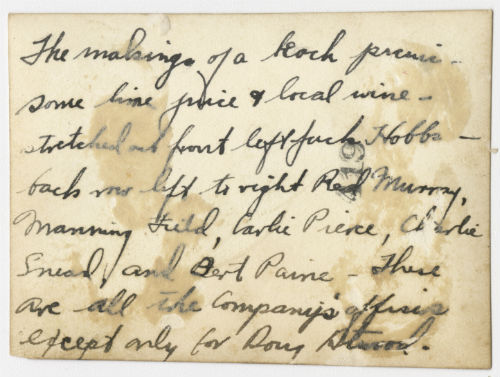 The makings of a beach picnic -
some lime juice & local wine -
stretched out front left Jack Hobbs -
back row left to right Red Murray,
Manning Field, Carlie Pierce, Charlie
Snead, and Bert Paine - These
are all the Company's officers
except only for Doug Atwood.
419